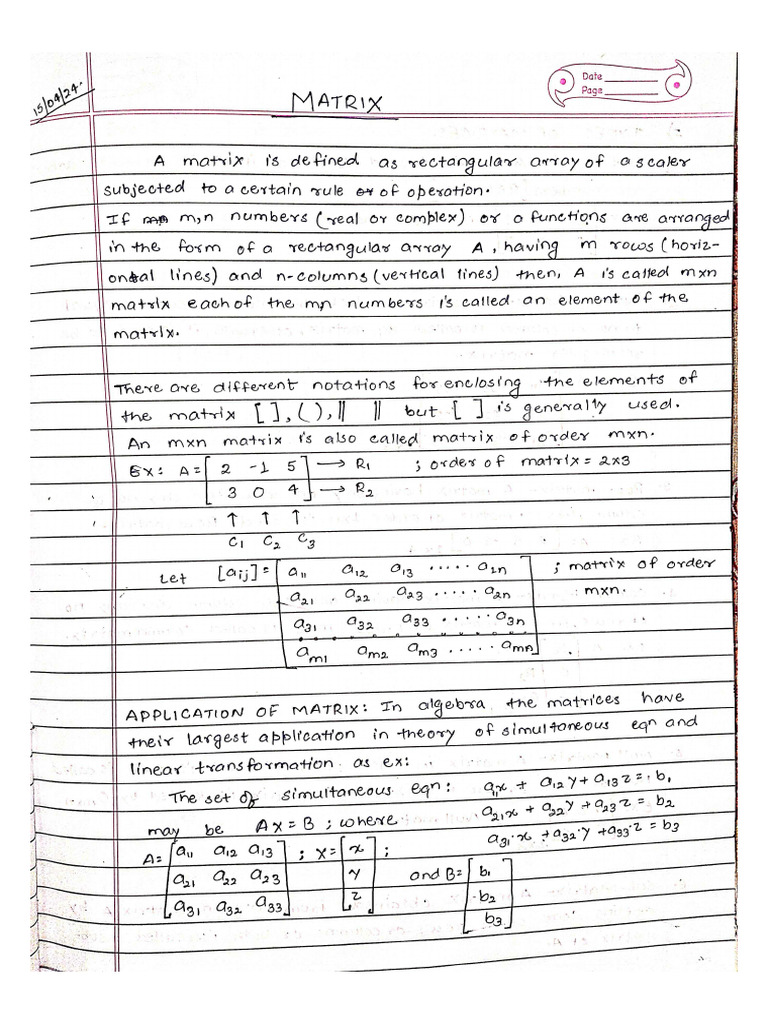 15/04/24.
Date
Page
MATRIX
A matrix is defined as rectangular array of a scaler
subjected to a certain rule of operation.
If m,n numbers (real or complex) or a functions are arranged
in the form of a rectangular array A, having m rows (horiz-
ontal lines) and n-columns (vertical lines) then, A is called mxn
matrix each of the mn numbers is called an element of the
matrix.
There are different notations for enclosing the elements of
the matrix [ ], ( ), || || but [ ] is generally used.
An mxn matrix is also called matrix of order mxn.
Ex: A = [ 2 -1 5 ] → R₁ ; order of matrix = 2x3
[ 3 0 4 ] → R₂
↑ ↑ ↑
C₁ C₂ C₃
Let [aij] = [ a₁₁ a₁₂ a₁₃ ..... a₁n ] ; matrix of order
a₂₁ a₂₂ a₂₃ ..... a₂n mxn.
a₃₁ a₃₂ a₃₃ ..... a₃n
am₁ am₂ am₃ ..... amn
APPLICATION OF MATRIX: In algebra, the matrices have
their largest application in theory of simultaneous eqn and
linear transformation as ex:
The set of simultaneous eqn: a₁₁x + a₁₂y + a₁₃z = b₁
a₂₁x + a₂₂y + a₂₃z = b₂
may be AX = B ; where a₃₁x + a₃₂y + a₃₃z = b₃
A = [ a₁₁ a₁₂ a₁₃ ] ; X = [ x ] ; and B = [ b₁ ]
a₂₁ a₂₂ a₂₃ y b₂
a₃₁ a₃₂ a₃₃ z b₃